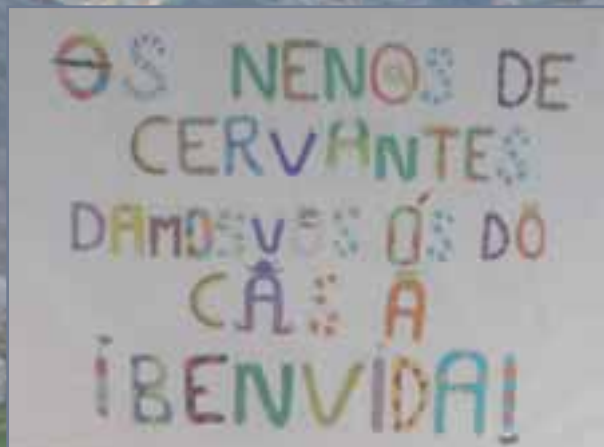 OS NENOS DE
CERVANTES
DAMOSVOS ÓS DO
CAS A
¡BENVIDA!